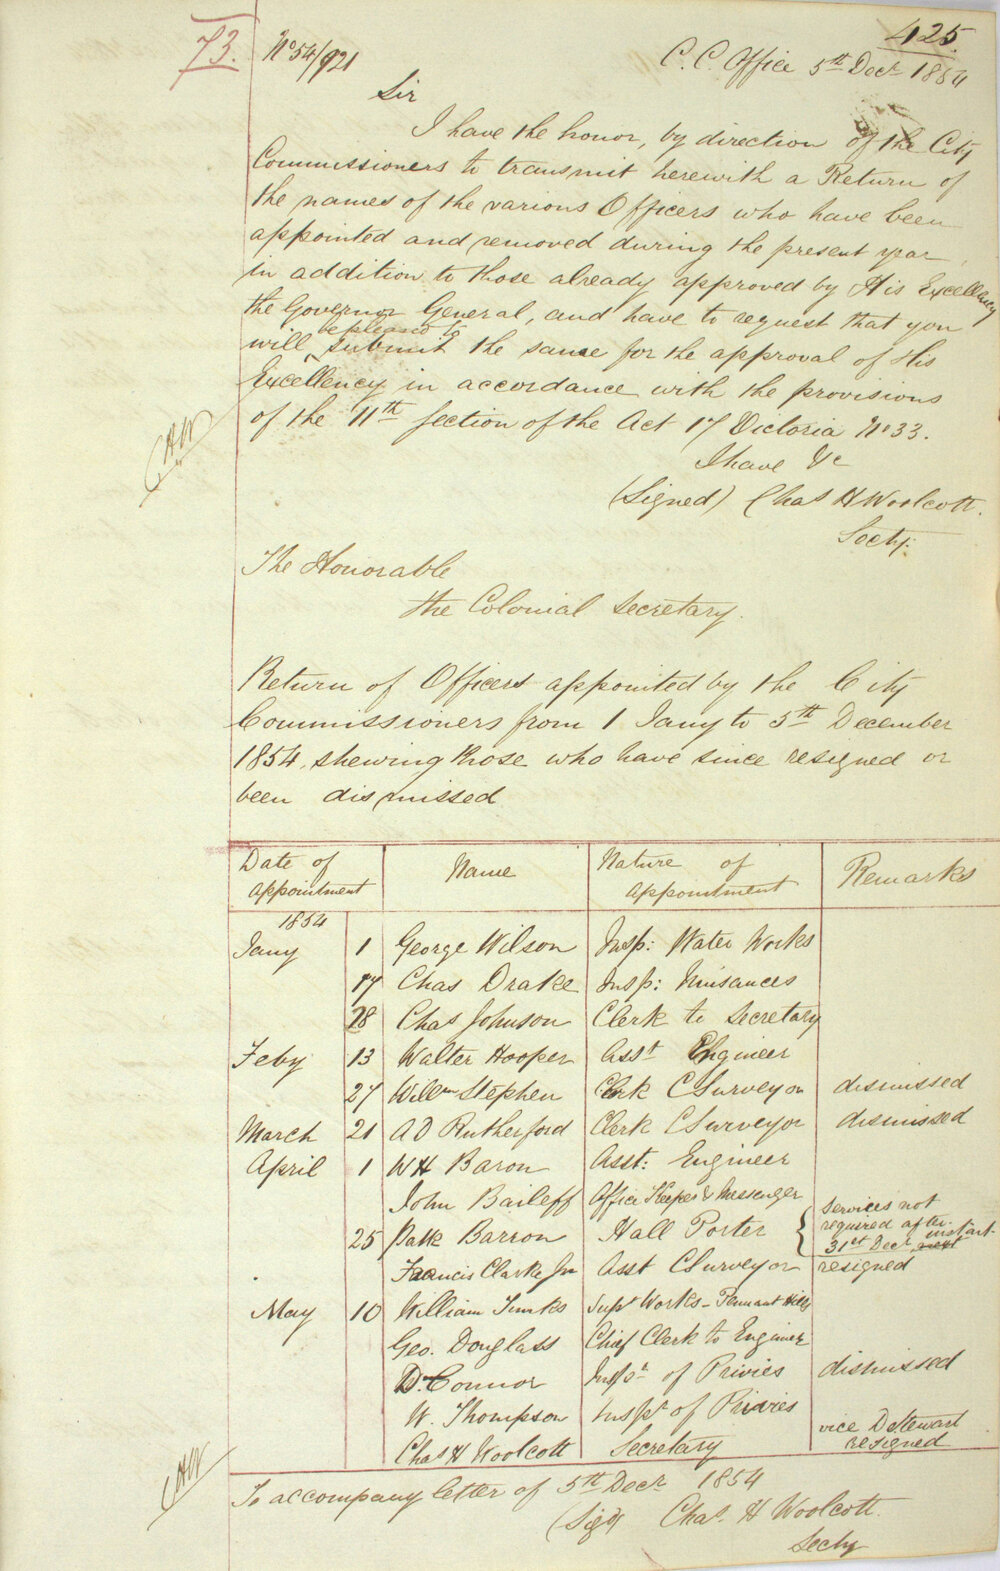 425.
73.
No 54/921
C. C. Office 5th Decr 1854
Sir
I have the honor, by direction of the City
Commissioners to transmit herewith a Return of
the names of the various Officers who have been
appointed and removed during the present year
in addition to those already approved by His Excellency
the Governor General, and have to request that you
be pleased to
will submit the same for the approval of His
Excellency in accordance with the provisions
of the 11th Section of the Act 17 Victoria No 33.
I have &c
(Signed) Chas H Woolcott.
Secty:
CHW
The Honorable
the Colonial Secretary.
Return of Officers appointed by the City
Commissioners from 1 Jany to 5th December
1854, shewing those who have since resigned or
been dismissed
Date of appointment | Name | Nature of appointment | Remarks
1854
Jany 1 George Wilson Insp: Water Works
17 Chas Drake Insp: Nuisances
18 Chas Johnson Clerk to Secretary
Feby 13 Walter Hooper Asst Engineer
27 Willm Stephen Clerk C Surveyor dismissed
March 21 A D Rutherford Clerk C Surveyor dismissed
April 1 W H Baron Asst: Engineer
John Baileff Office Keeper & Messenger
25 Patk Barron Hall Porter { Services not required after 31st Decr next instant
Francis Clarke Jnr Asst C Surveyor resigned
May 10 William Timks Supt Works - Pennant Hills
Geo. Douglass Chief Clerk to Engineer
D. Connor Inspr of Privies dismissed
W. Thompson Inspr of Privies
Chas H Woolcott Secretary vice D Stewart resigned
CHW
To accompany letter of 5th Decr 1854
(Sigd) Chas. H Woolcott.
Secty